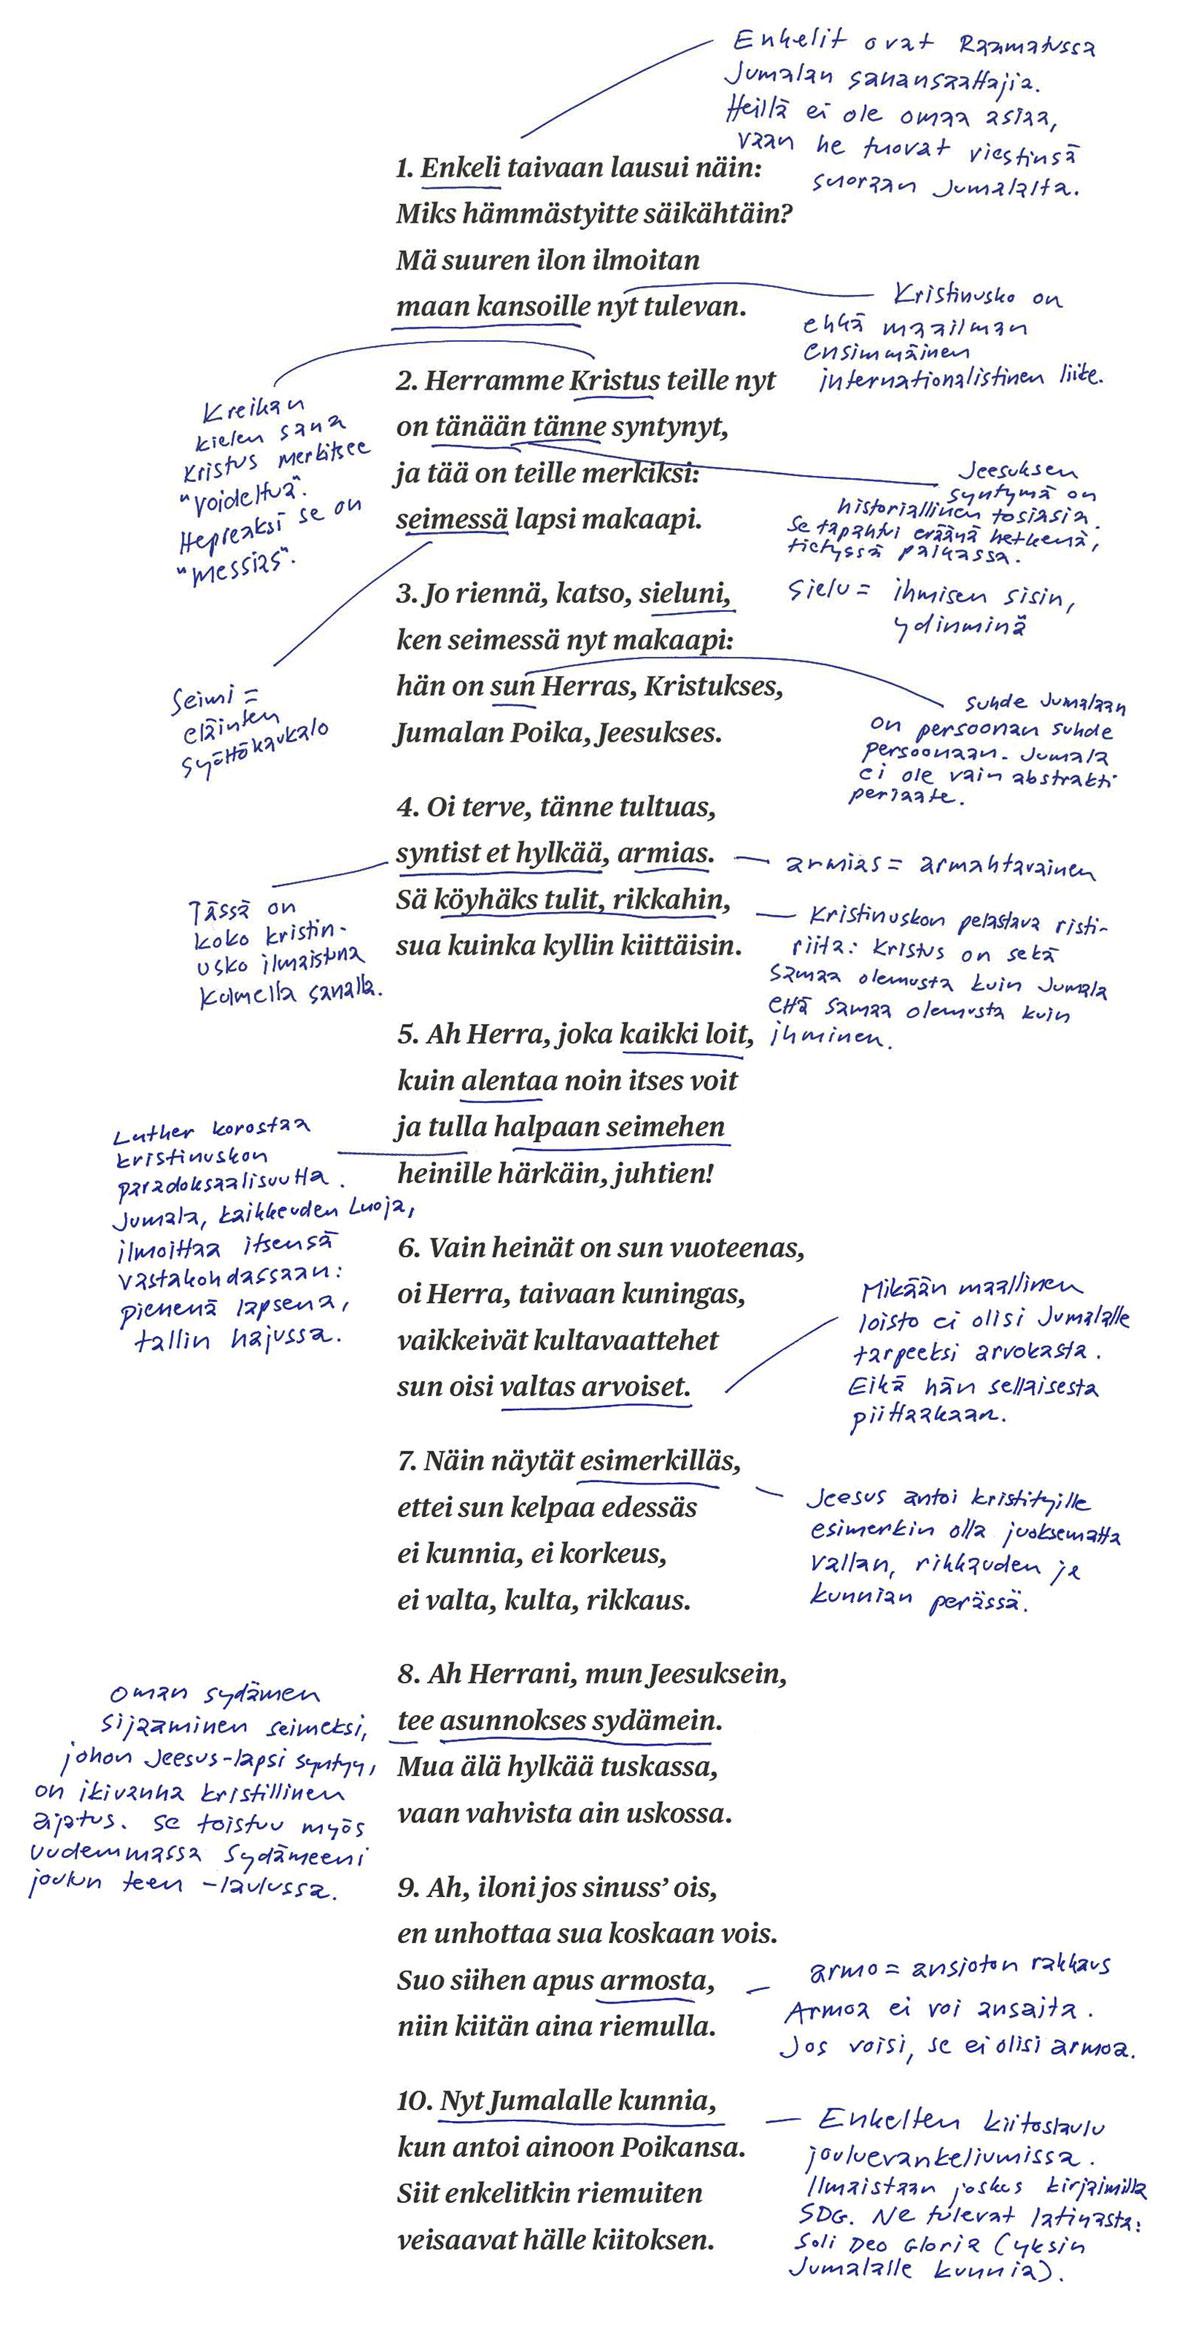 Enkelit ovat Raamatussa
Jumalan sanansaattajia.
Heillä ei ole omaa asiaa,
vaan he tuovat viestinsä
suoraan Jumalalta.
1. Enkeli taivaan lausui näin:
Miks hämmästyitte säikähtäin?
Mä suuren ilon ilmoitan
maan kansoille nyt tulevan.
Kristinusko on
ehkä maailman
ensimmäinen
internationalistinen liike.
2. Herramme Kristus teille nyt
on tänään tänne syntynyt,
ja tää on teille merkiksi:
seimessä lapsi makaapi.
Kreikan
kielen sana
Kristus merkitsee
"voideltua".
Hepreaksi se on
"messias".
Jeesuksen
syntymä on
historiallinen tosiasia.
Se tapahtui eräänä hetkenä,
tietyssä paikassa.
3. Jo riennä, katso, sieluni,
ken seimessä nyt makaapi:
hän on sun Herras, Kristukses,
Jumalan Poika, Jeesukses.
Sielu = ihmisen sisin,
ydinminä
Seimi =
eläinten
syöttökaukalo
Suhde Jumalaan
on persoonan suhde
persoonaan. Jumala
ei ole vain abstrakti
periaate.
4. Oi terve, tänne tultuas,
syntist et hylkää, armias.
Sä köyhäks tulit, rikkahin,
sua kuinka kyllin kiittäisin.
armias = armahtavainen
Tässä on
koko kristin-
usko ilmaistuna
kolmella sanalla.
Kristinuskon pelastava risti-
riita: Kristus on sekä
samaa olemusta kuin Jumala
että samaa olemusta kuin
ihminen.
5. Ah Herra, joka kaikki loit,
kuin alentaa noin itses voit
ja tulla halpaan seimehen
heinille härkäin, juhtien!
Luther korostaa
kristinuskon
paradoksaalisuutta.
Jumala, kaikkeuden Luoja,
ilmoittaa itsensä
vastakohdassaan:
pienenä lapsena,
tallin hajussa.
6. Vain heinät on sun vuoteenas,
oi Herra, taivaan kuningas,
vaikkeivät kultavaattehet
sun oisi valtas arvoiset.
Mikään maallinen
loisto ei olisi Jumalalle
tarpeeksi arvokasta.
Eikä hän sellaisesta
piittaakaan.
7. Näin näytät esimerkilläs,
ettei sun kelpaa edessäs
ei kunnia, ei korkeus,
ei valta, kulta, rikkaus.
Jeesus antoi kristityille
esimerkin olla juoksematta
vallan, rikkauden ja
kunnian perässä.
8. Ah Herrani, mun Jeesuksein,
tee asunnokses sydämein.
Mua älä hylkää tuskassa,
vaan vahvista ain uskossa.
Oman sydämen
sijaaminen seimeksi,
johon Jeesus-lapsi syntyy,
on ikivanha kristillinen
ajatus. Se toistuu myös
uudemmassa Sydämeeni
joulun teen -laulussa.
9. Ah, iloni jos sinuss' ois,
en unhottaa sua koskaan vois.
Suo siihen apus armosta,
niin kiitän aina riemulla.
armo = ansioton rakkaus
Armoa ei voi ansaita.
Jos voisi, se ei olisi armoa.
10. Nyt Jumalalle kunnia,
kun antoi ainoon Poikansa.
Siit enkelitkin riemuiten
veisaavat hälle kiitoksen.
Enkelten kiitoslaulu
jouluevankeliumissa.
Ilmaistaan joskus kirjaimilla
SDG. Ne tulevat latinasta:
Soli Deo Gloria (yksin
Jumalalle kunnia).